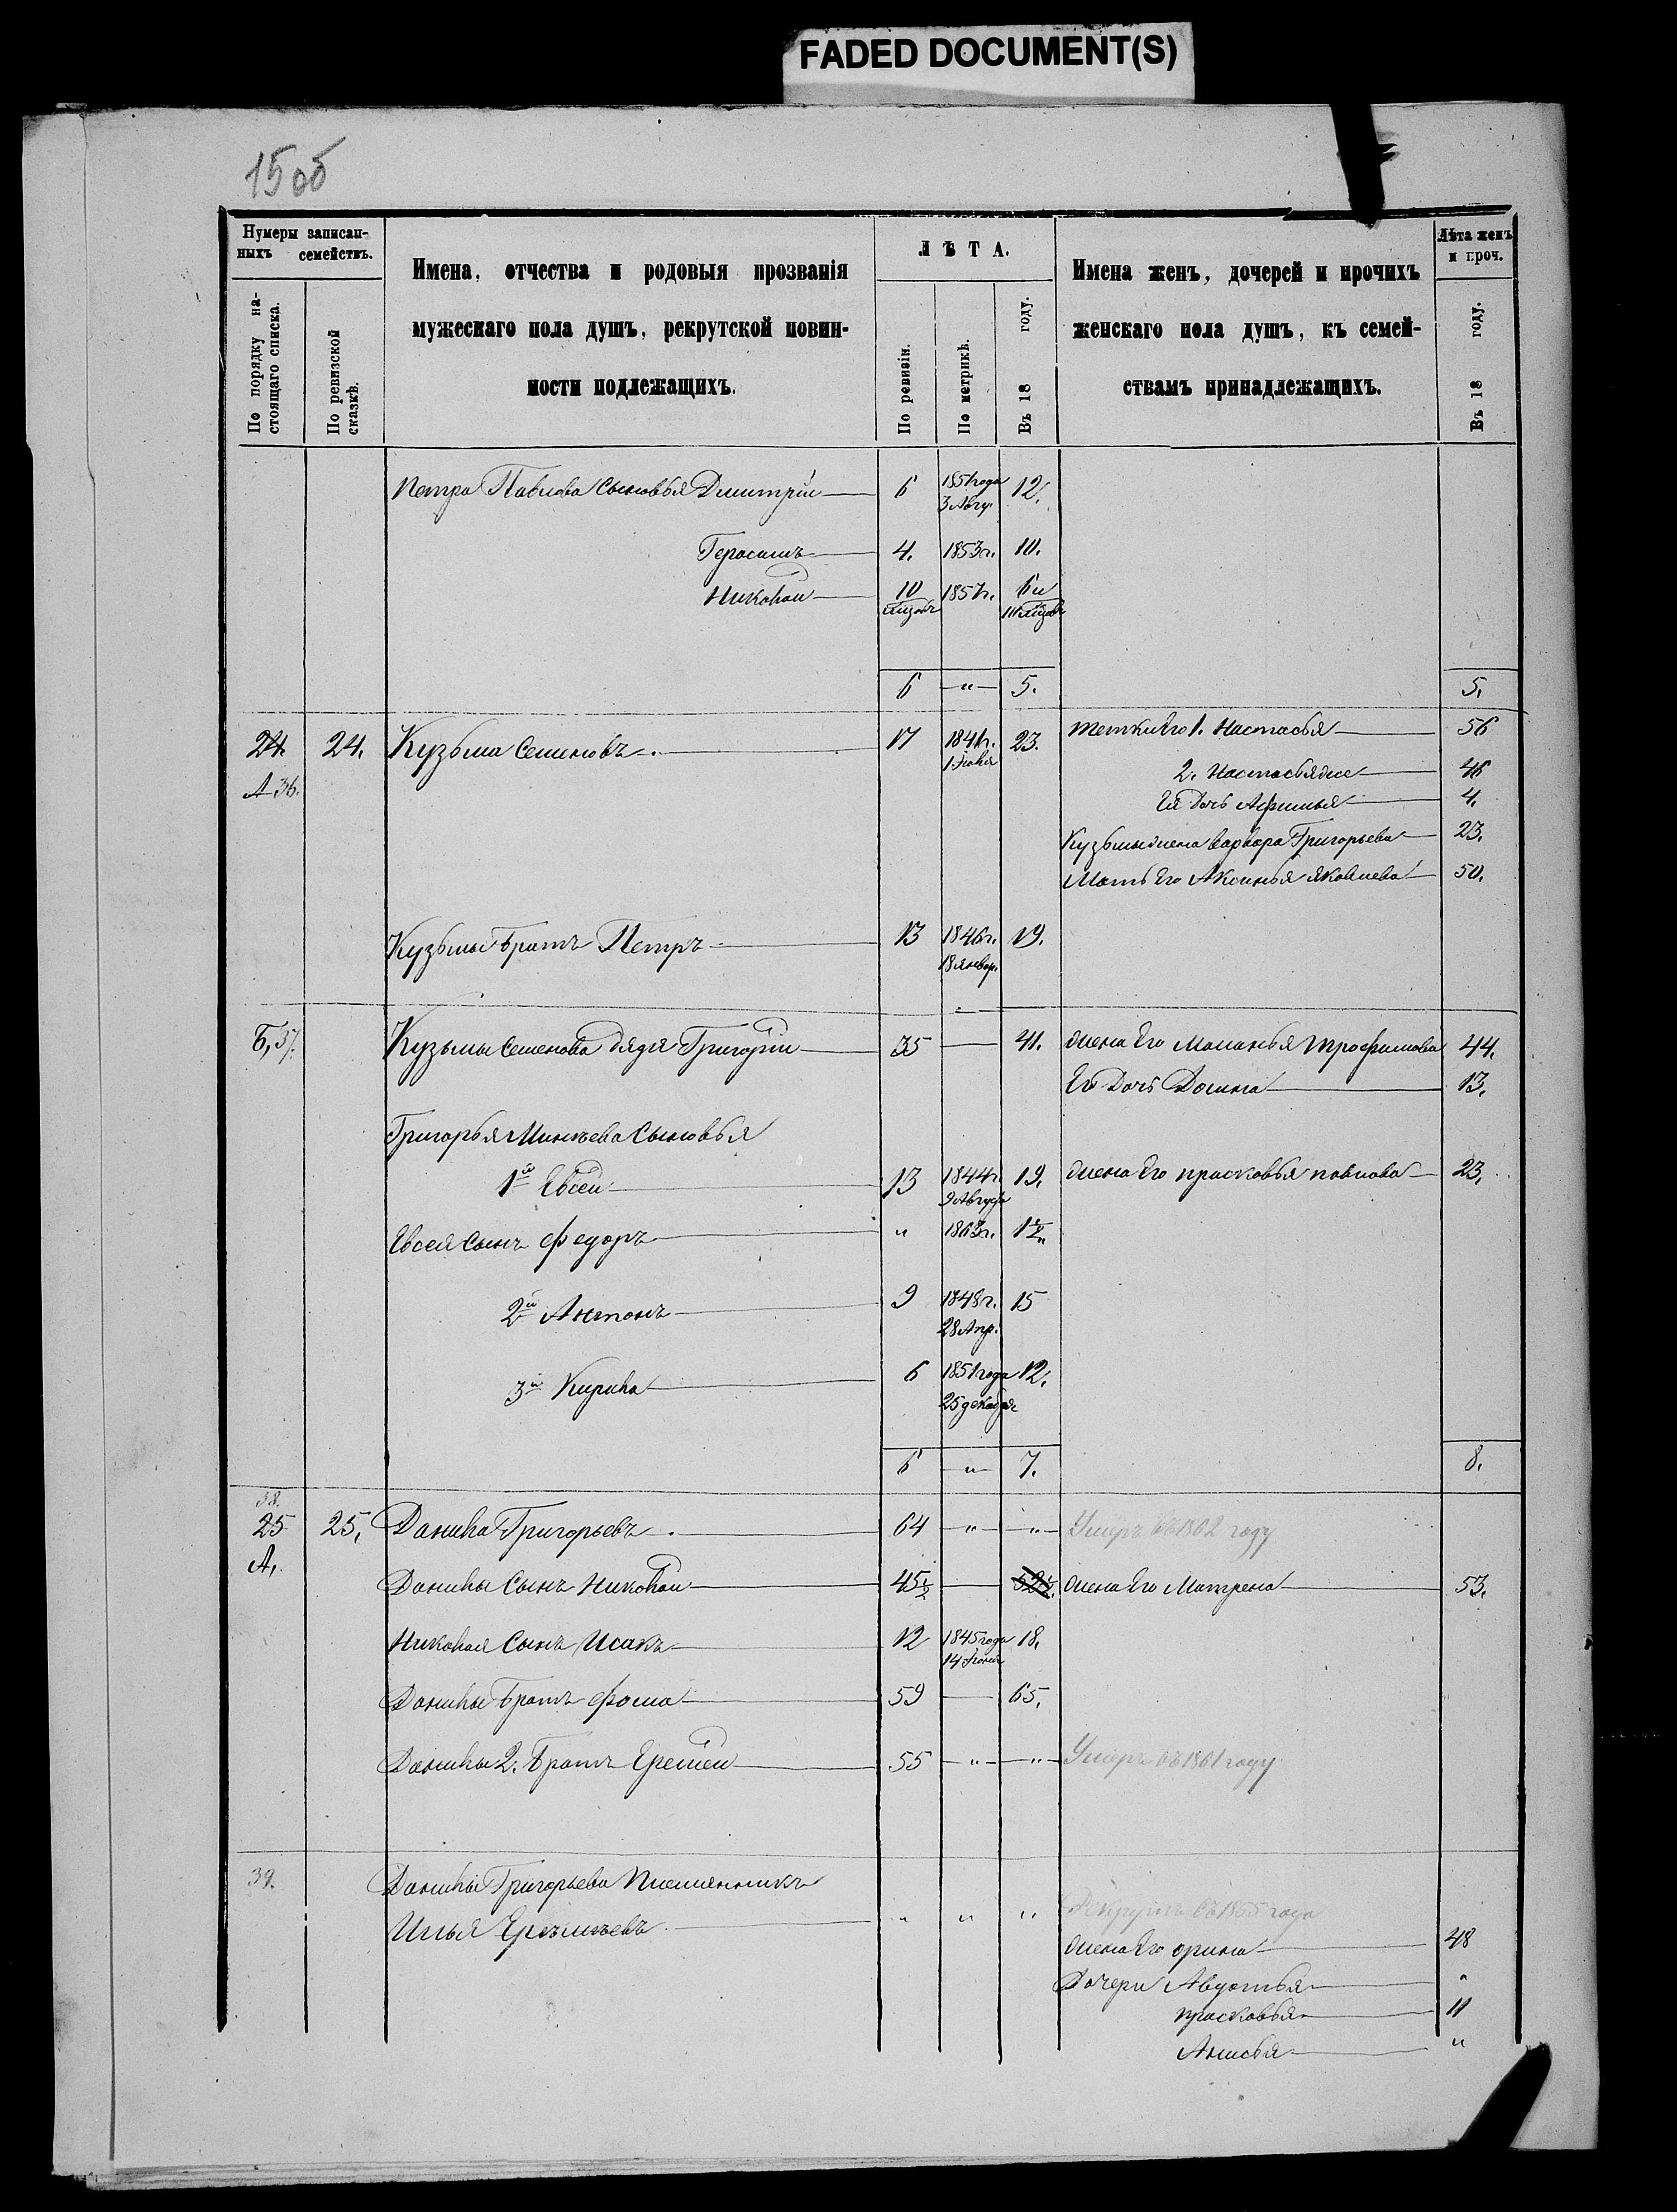 FADED DOCUMENT(S)
15об
Нумеры записан-
ныхъ семействъ.
По порядку на-
стоящаго списка.
По ревизской
сказкѣ.
Имена, отчества и родовыя прозванія
мужескаго пола душъ, рекрутской повин-
ности подлежащихъ.
ЛѢТА.
По ревизіи.
По метрикѣ.
Въ 18 году.
Имена женъ, дочерей и прочихъ
женскаго пола душъ, къ семей-
ствамъ принадлежащихъ.
Лѣта женъ
и проч.
Въ 18 году.
Петра Павлова Сыновья Дмитрій 6 1851 года 12.
3 Авгу.
Герасимъ 4. 1853 г. 10.
Николай 10 1857 г. 6 и
6 " 5. 5.
24. 24. Кузьма Семеновъ 17 1841 г. 23. тетки Его 1. Настасья 56
А 36. 2. Настасья же 46
Ея дочь Афимья 4.
Кузьмы жена Варвара Григорьева 23.
Мать Его Аксинья Яковлева 50.
Кузьмы братъ Петръ 13 1846 г. 19.
18 январ.
Б, 37. Кузьмы Семенова дядя Григорій 35 41. жена Его Маланья Трофимова 44.
Его дочь Домна 13.
Григорья Минѣева Сыновья
1й Евсей 13 1844 г. 19. жена Его прасковья павлова 23.
9 Августа
Евсея сынъ Федоръ " 1863 г. 1/2
2й Антонъ 9 1848 г. 15
28 Апр.
3й Кирила 6 1851 года 12.
25 декабря
6 " 7. 8.
38.
25 25. Данила Григорьевъ 64 " " Умеръ въ 1862 году
А.
Данилы Сынъ Николай 45 1/2 52 1/2 жена Его Матрена 53.
Николая Сынъ Исакъ 12 1845 года 18.
Данилы братъ Фома 59 65.
Данилы 2. братъ Еремей 55 " " Умеръ въ 1861 году
39. Данилы Григорьева племянникъ
Илья " " " Рекрутъ въ 1855 года
жена Его орина 48
Дочери Авдотья "
прасковья 11
Анисья "